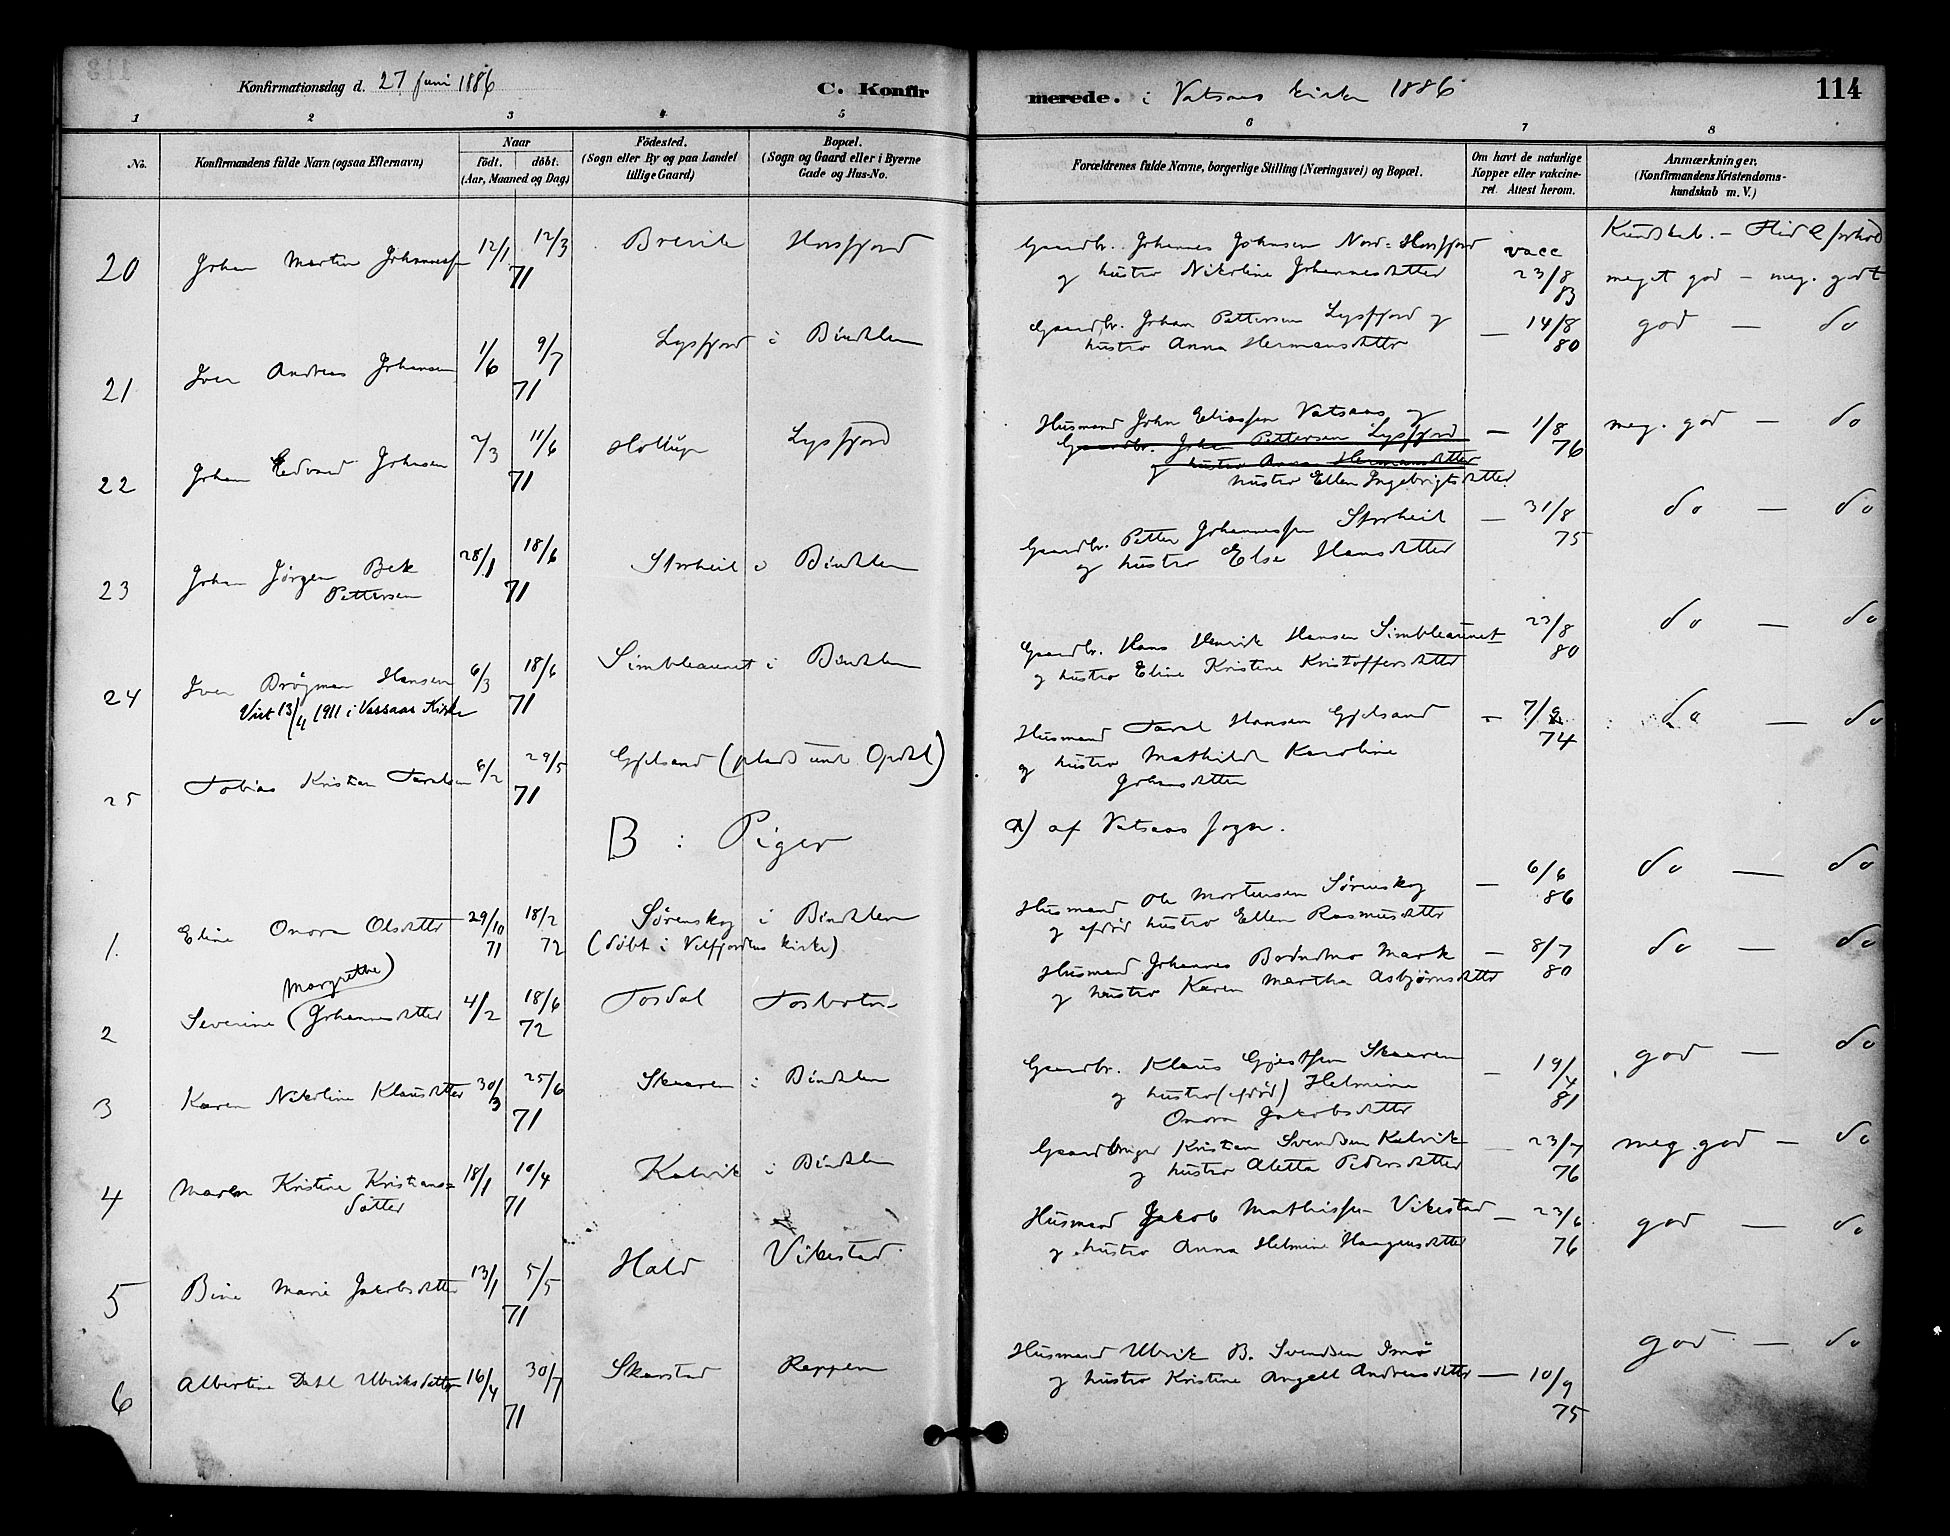 Konfirmationsdag d. 27 Juni 1886
C. Konfirmerede. i Vatsaas Kirke 1886
114
1 2 3 4 5 6 7 8
No.
Konfirmandens fulde Navn (ogsaa Efternavn)
Naar
födt. döbt.
(Aar, Maaned og Dag)
Födested.
(Sogn eller By og paa Landet
tillige Gaard)
Bopæl.
(Sogn og Gaard eller i Byerne
Gade og Hus-No.
Forældrenes fulde Navne, borgerlige Stilling (Næringsvei) og Bopæl.
Om havt de naturlige
Kopper eller vakcine-
ret. Attest herom.
Anmærkninger.
(Konfirmandens Kristendoms-
kundskab m. V.)
Kundskab. – Flid & forhold
20 Johan Martin Johanness. 12/1 12/3 71 Brevik Horsfjord Gaardbr. Johannes Johnsen Nord-Horsfjord
og hustro Nikoline Johannesdatter vacc 23/8 83 meget god – meg. godt
21 Iver Andreas Johansen 1/6 9/7 71 Lysfjord i Bindalen Gaardbr. Johan Pettersen Lysfjord og
hustro Anna Hermansdatter – 14/8 80 god – do
22 Johan Edvard Johnsen 2/3 11/6 71 Lysfjord Husmand John Eliassen Vatsaas og
Gaardbr. Johan Pettersen Lysfjord
og hustro Anna Hermansdatter
hustro Ellen Ingebrigtsdatter – 1/8 76 meg. god – do
23 Johan Jörgen Bek
Pettersen 28/1 18/6 71 Storheil i Bindalen Gaardbr. Petter Johannessen Storheil
og hustro Else Hansdatter – 31/8 75 do – do
24 Iver Brögman Hansen 6/3 18/6 71 Simbleaunet i Bindalen Gaardbr. Hans Henrik Hansen Simbleaunet
Viet 13/4 1911 i Vassaas Kirke
og hustro Eline Kristine Kristoffersdatter 23/8 80 do – do
25 Tobias Kristian Taralsen 6/2 29/5 71 Gjelsand (plads und. Opdal) Husmand Taral Hansen Gjelsand
og hustro Mathilde Karoline
Johansdatter – 7/9 74 do – do
B : Piger a) af Vatsaas Sogn.
1. Eline Onora Olsdatter 29/10 71 18/2 72 Sörenskog i Bindalen
(döbt i Velfjordens kirke) Husmand Ole Mortensen Sörenskog
og afdöd hustro Ellen Rasmusdatter – 6/6 86 do – do
2 Severine (Margrethe) Johannesdatter 4/2 18/6 72 Tosdal Tosbotn Husmand Johannes Bodndmo Mark
og hustro Karen Martha Asbjörnsdatter – 8/7 80 do – do
3 Karen Nikoline Klausdatter 30/3 25/6 71 Skaaren i Bindalen Gaardbr. Klaus Gjertsen Skaaren
og hustro (afdöd) Helmine
Onora Jakobsdatter – 19/4 81 god – do
4 Maren Kristine Kristians-
datter 18/1 10/4 71 Kalvik i Bindalen Gaardbruger Kristian Svendsen Kalvik
og hustro Aletta Pedersdatter – 23/7 76 meg. god – do
5 Bine Marie Jakobsdatter 13/1 5/5 71 Hald Vikestad Husmand Jakob Mathissen Vikestad
og hustro Anna Helmine Haagensdatter – 23/6 76 god – do
6 Albertine Dahl Ulriksdatter 16/4 30/7 71 Skarstad Reppen Husmand Ulrik B. Svendsen Imö
og hustro Kristine Angell Andreasdatter – 10/9 75 god – do